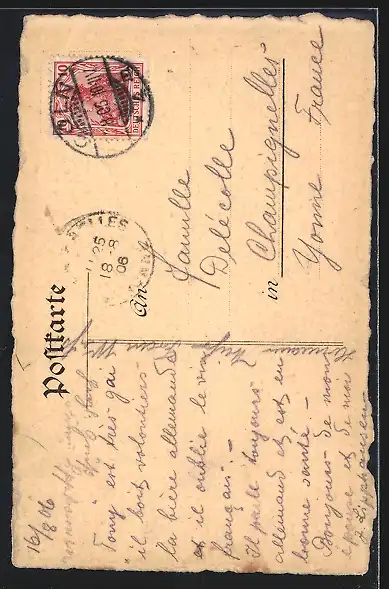 Postkarte
An
Famille
Delécolle
in Champignelles
Yonne France
DEUTSCHES REICH
10 10
18-8
06
16/8 06
Tony est très gai
il boit volontiers
la bière allemande
et il oublie le vin
français –
Il parle toujours
allemand et est en
bonne santé –
Bonjours de mon
épouse et de moi
Hermann